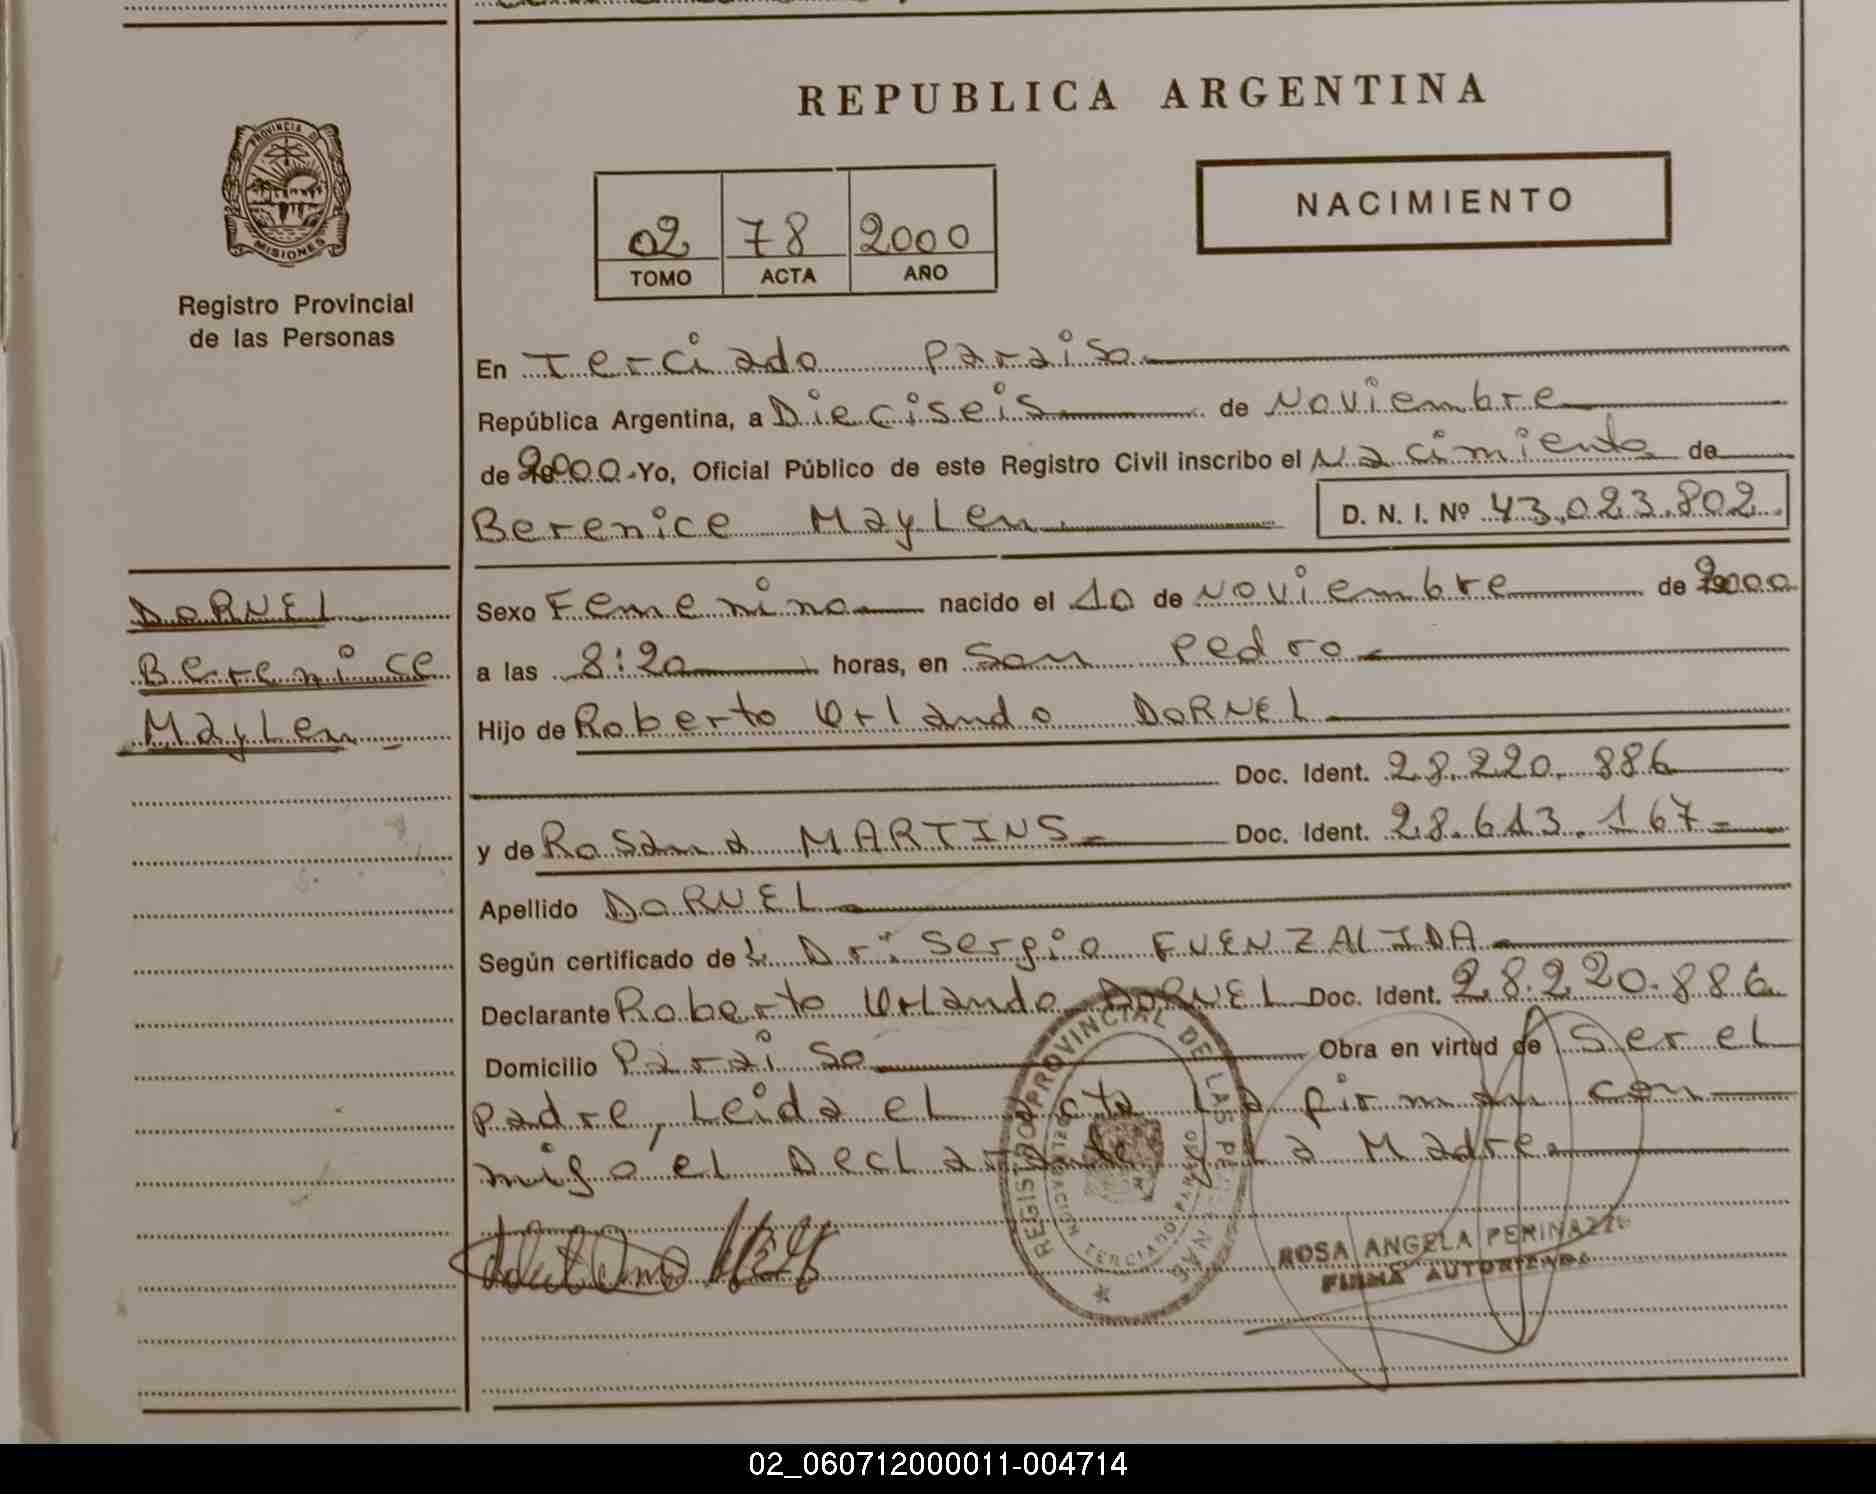 REPUBLICA ARGENTINA
PROVINCIA DE
MISIONES
Registro Provincial
de las Personas
02 78 2000
TOMO ACTA AÑO
NACIMIENTO
En Terciado Paraiso
República Argentina, a Dieciseis de Noviembre
de 2000 Yo, Oficial Público de este Registro Civil inscribo el Nacimiento de
Berenice Maylen D. N. I. Nº 43.023.802
DORNEL
Berenice
Maylen
Sexo Femenino nacido el 10 de Noviembre de 2000
a las 8:20 horas, en San Pedro
Hijo de Roberto Orlando DORNEL
Doc. Ident. 28.220.886
y de Rosana MARTINS Doc. Ident. 28.613.167
Apellido DORNEL
Según certificado de L Dr: Sergio FUENZALIDA
Declarante Roberto Orlando DORNEL Doc. Ident. 28.220.886
Domicilio Paraiso Obra en virtud de Ser el
padre, Leida el acta La firman con
migo el Declarante y La Madre
REGISTRO PROVINCIAL DE LAS
TERCIADO PARAISO
ROSA ANGELA PERINAZZO
FIRMA AUTORIZADA
02_060712000011-004714